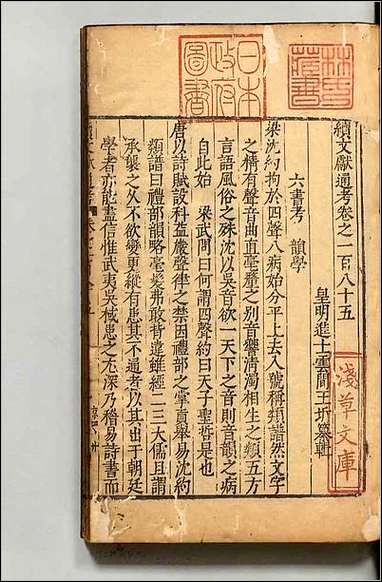 續文獻通考卷之一百八十五
皇明進士雲間王圻纂輯
六書考　韻學
梁沈約拘於四聲八病始分平上去入號稱類譜然文字
之情有聲音曲直毫釐之別音響清濁相生之類五方
言語風俗之殊沈以吳音欲一天下之音則音韻之病
自此始　梁武問曰何謂四聲約曰天子聖哲是也
唐以詩賦設科益嚴聲律之禁因禮部之掌貢舉易沈約
類譜曰禮部韻略毫髮弗敢背違雖經二三大儒且謂
承襲之久不欲變更縱有患其不通者以其出于朝廷
學者亦能盡信惟武夷吳棫患之尤深乃稽易詩書而
日本
政府
圖書
林氏
藏書
淺草文庫